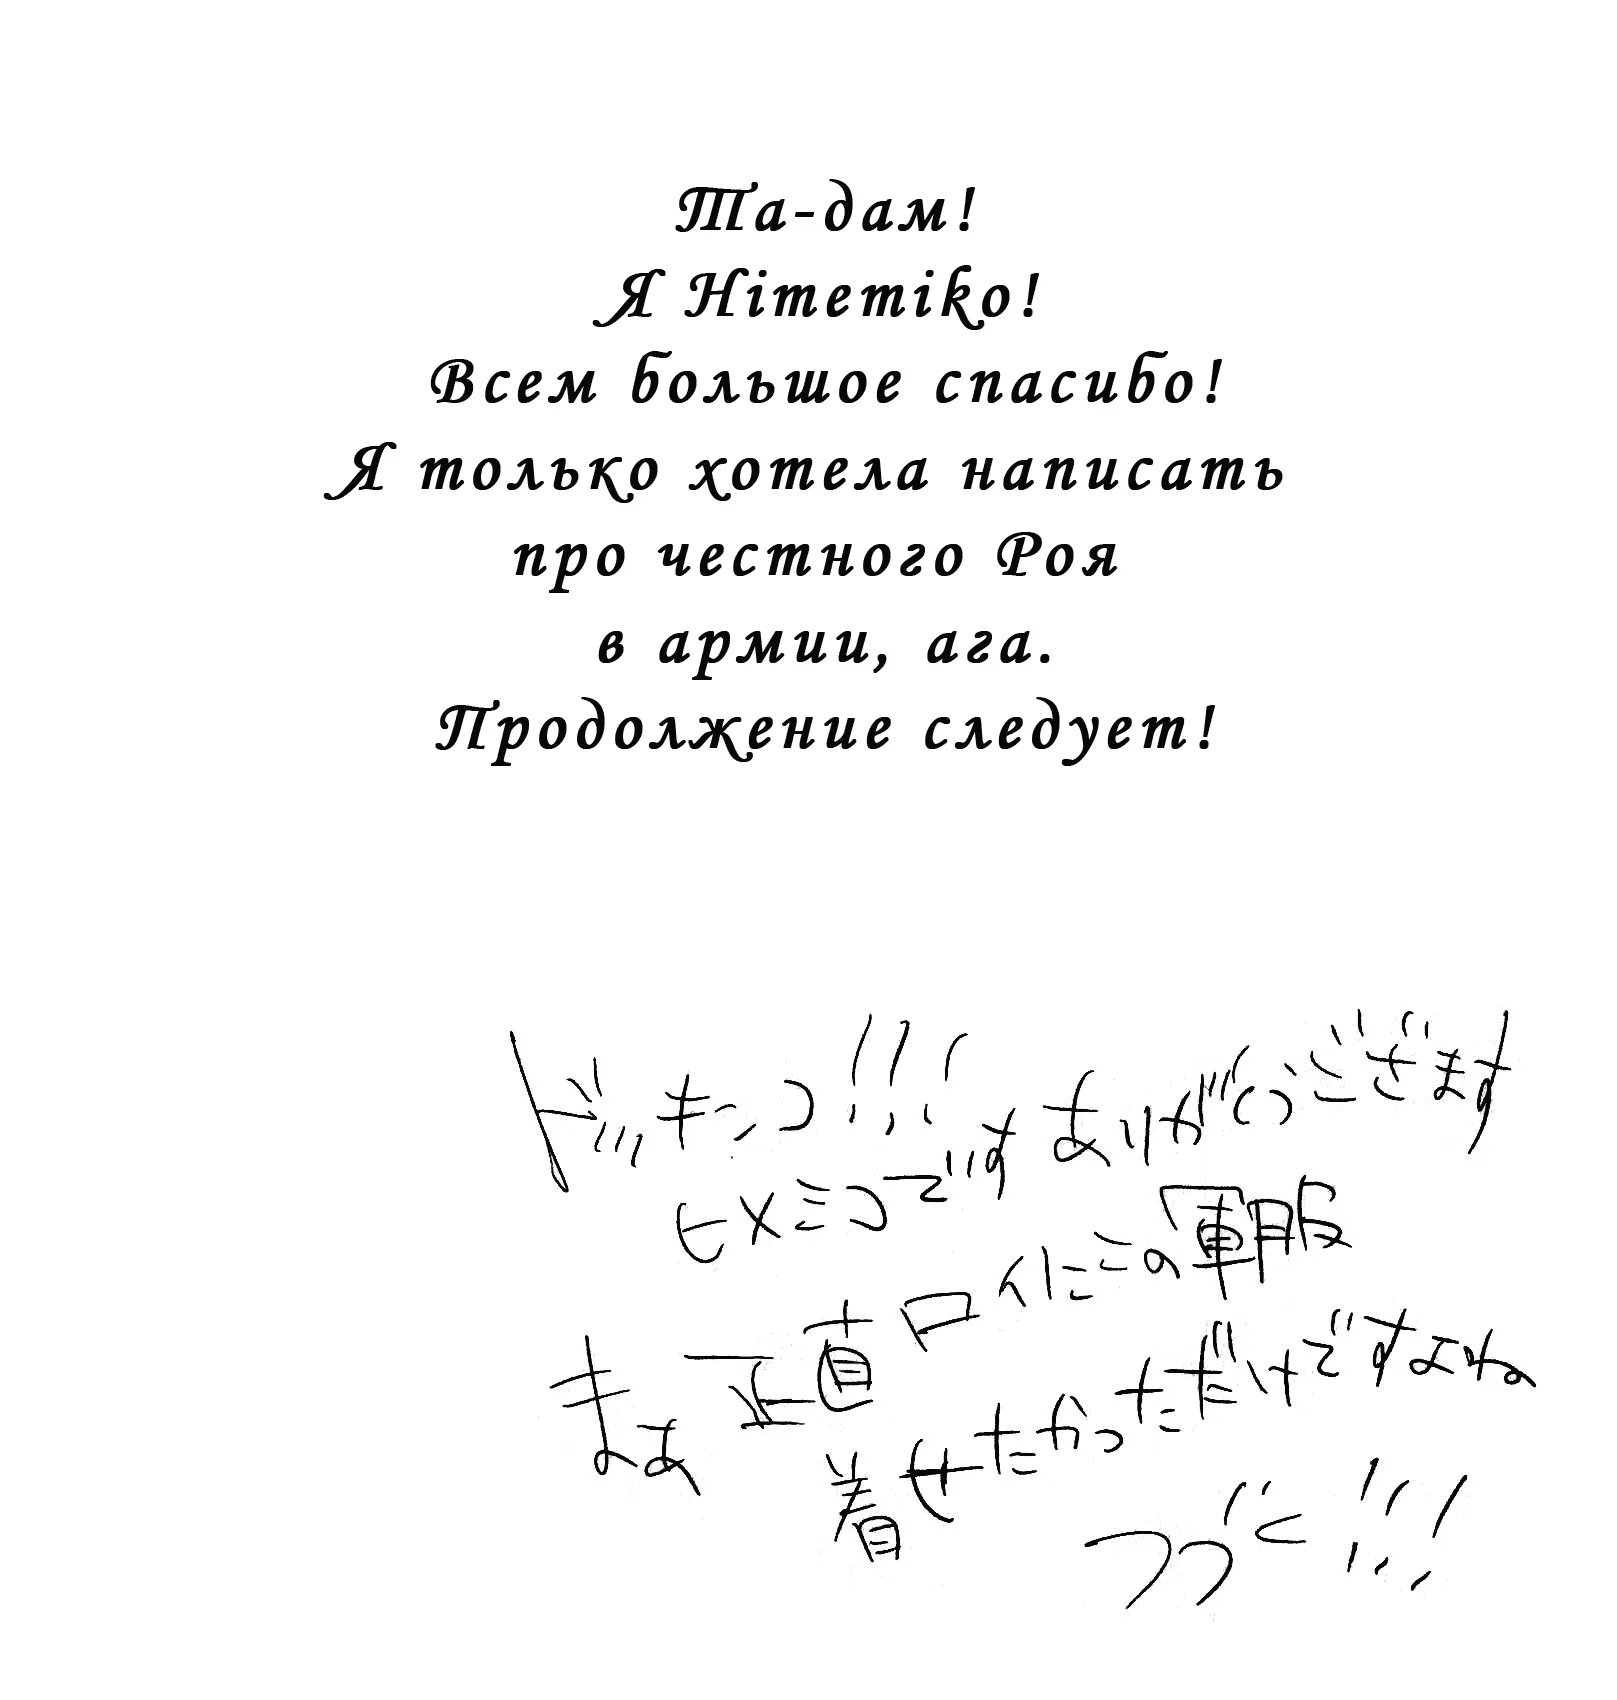 Та-дам!
Я Himemiko!
Всем большое спасибо!
Я только хотела написать
про честного Роя
в армии, ага.
Продолжение следует!
ドキンコ!!!
ヒメミコです ありがとうございます
まぁ 正直 ロイにこの軍服
着せたかっただけですよね
つづく!!!